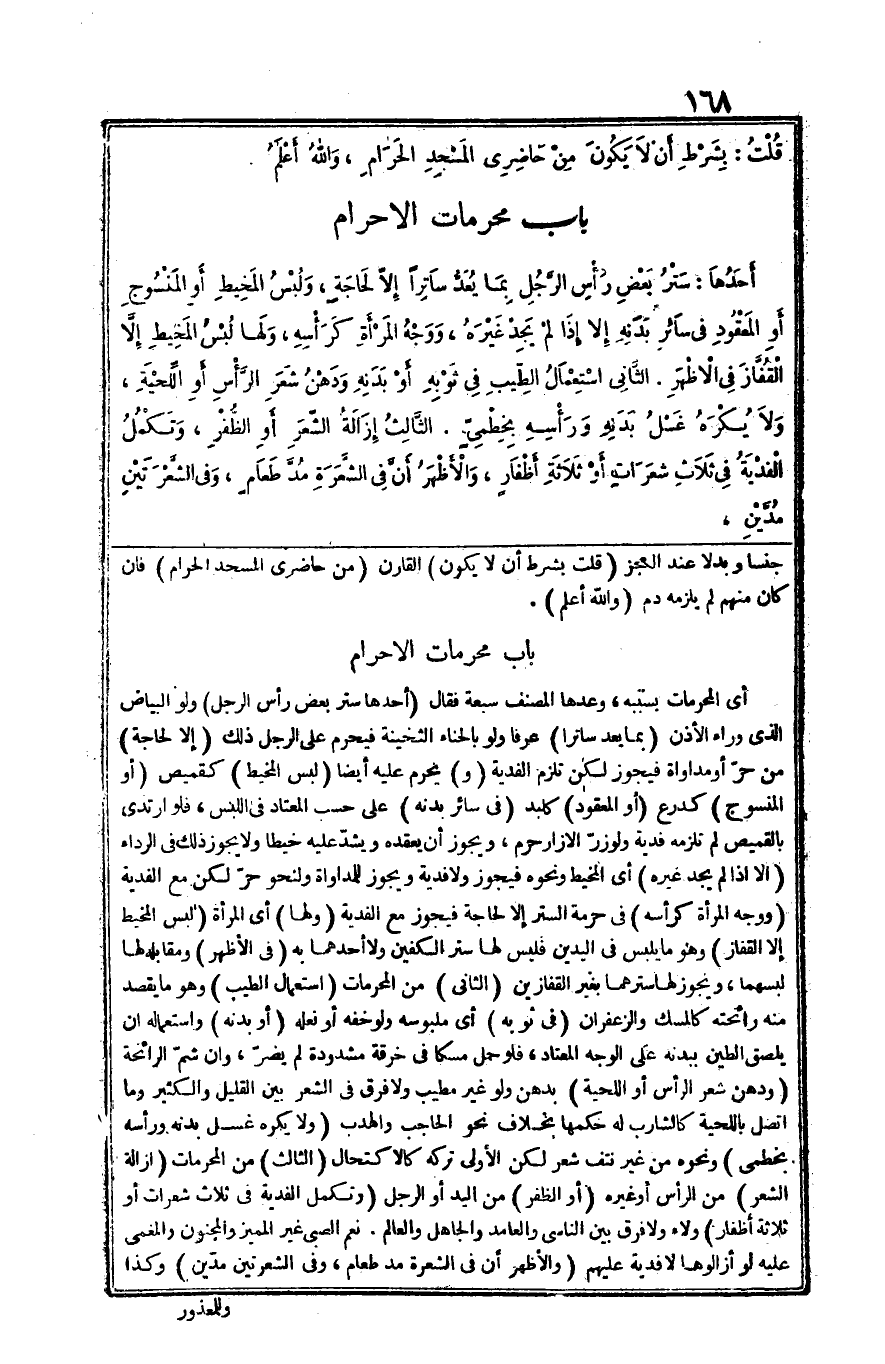 ١٦٨
قُلْتُ : بِشَرْطِ أَنْ لاَ يَكُونَ مِنْ حَاضِرِى المَسْجِدِ الحَرَامِ ، وَاللهُ أَعْلَمُ .
باب محرمات الاحرام
أَحَدُهَا : سَتْرُ بَعْضِ رَأْسِ الرَّجُلِ بِمَا يُعَدُّ سَاتِراً إِلاَّ لَحَاجَةٍ ، وَلُبْسُ المَخِيطِ أَوِ المَنْسُوجِ
أَوِ المَعْقُودِ فى سَائِرِ بَدَنِهِ إِلا إِذَا لَمْ يَجِدْ غَيْرَهُ ، وَوَجْهُ المَرْأَةِ كَرَأْسِهِ ، وَلَهَا لُبْسُ المَخِيطِ إِلَّا
الْقُفَّازَ فِى الْاظْهَرِ . الثَّانِى اسْتِعْمَالُ الطِّيبِ فِى ثَوْبِهِ أَوْ بَدَنِهِ وَدَهْنُ شَعَرِ الرَّأْسِ أَوِ اللِّحْيَةِ ،
وَلاَ يُكْرَهُ غَسْلُ بَدَنِهِ وَرَأْسِهِ بِخِطْمِىٍّ . الثَّالِثُ إِزَالَةُ الشَّعَرِ أَوِ الظُّفْرِ ، وَتَكْمُلُ
الْفِدْيَةُ فِى ثَلاَثِ شَعَرَاتٍ أَوْ ثَلَاثَةِ أَظْفَارٍ ، وَالْأَظْهَرُ أَنَّ فِى الشَّعَرَةِ مُدَّ طَعَامٍ ، وَفى الشَّعْرَتَيْنِ
مُدَّيْنِ ،
جنسا وبدلا عند العجز ( قلت بشرط أن لا يكون ) القارن ( من حاضرى المسجد الحرام ) فان
كان منهم لم يلزمه دم ( والله أعلم ) .
باب محرمات الاحرام
أى المحرمات بسببه ، وعدها المصنف سبعة فقال ( أحدها ستر بعض رأس الرجل ) ولو البياض
الذى وراء الأذن ( بما يعد ساترا ) عرفا ولو بالحناء الثخينة فيحرم على الرجل ذلك ( إلا لحاجة )
من حرّ أو مداواة فيجوز لكن تلزم الفدية ( و ) يحرم عليه أيضا ( لبس المخيط ) كقميص ( أو
المنسوج ) كدرع ( أو المعقود ) كلبد ( فى سائر بدنه ) على حسب المعتاد فى اللبس ، فلو ارتدى
بالقميص لم تلزمه فدية ولو زرّ الازار حرم ، ويجوز أن يعقده ويشدّ عليه خيطا ولا يجوز ذلك فى الرداء
( الا اذا لم يجد غيره ) أى المخيط ونحوه فيجوز ولا فدية ويجوز للمداواة ولنحو حرّ لكن مع الفدية
( ووجه المرأة كرأسه ) فى حرمة الستر إلا لحاجة فيجوز مع الفدية ( ولها ) أى المرأة ( لبس المخيط
إلا القفاز ) وهو ما يلبس فى اليدين فليس لها ستر الكفين ولا أحدهما به ( فى الأظهر ) ومقابله لها
لبسهما ، ويجوز لها سترهما بغير القفازين ( الثانى ) من المحرمات ( استعمال الطيب ) وهو ما يقصد
منه رائحته كالمسك والزعفران ( فى ثوبه ) أى ملبوسه ولو خفه أو نعله ( أو بدنه ) واستعماله ان
يلصق الطين ببدنه على الوجه المعتاد ، فلو حمل مسكا فى خرقة مشدودة لم يضرّ ، وان شمّ الرائحة
( ودهن شعر الرأس أو اللحية ) بدهن ولو غير مطيب ولا فرق فى الشعر بين القليل والكثير وما
اتصل باللحية كالشارب له حكمها بخلاف نحو الحاجب والهدب ( ولا يكره غسل بدنه ورأسه
بخطمى ) ونحوه من غير نتف شعر لكن الأولى تركه كالاكتحال ( الثالث ) من المحرمات ( ازالة
الشعر ) من الرأس أو غيره ( أو الظفر ) من اليد أو الرجل ( وتكمل الفدية فى ثلاث شعرات أو
ثلاثة أظفار ) ولاء ولا فرق بين الناسى والعامد والجاهل والعالم . نعم الصبى غير المميز والمجنون والمغمى
عليه لو أزالوها لا فدية عليهم ( والأظهر أن فى الشعرة مد طعام ، وفى الشعرتين مدّين ) وكذا
وللمعذور